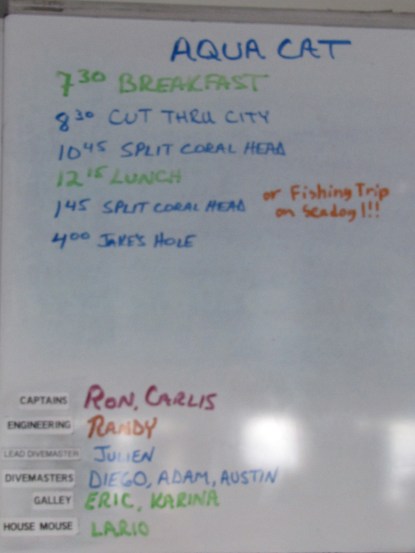 AQUA CAT
7³⁰ BREAKFAST
8³⁰ CUT THRU CITY
10⁴⁵ SPLIT CORAL HEAD
12¹⁵ LUNCH
1⁴⁵ SPLIT CORAL HEAD or Fishing Trip
on Seadog 1!!
4⁰⁰ JAKE'S HOLE
CAPTAINS RON, CARLIS
ENGINEERING RANDY
LEAD DIVEMASTER JULIEN
DIVEMASTERS DIEGO, ADAM, AUSTIN
GALLEY ERIC, KARINA
HOUSE MOUSE LARIO